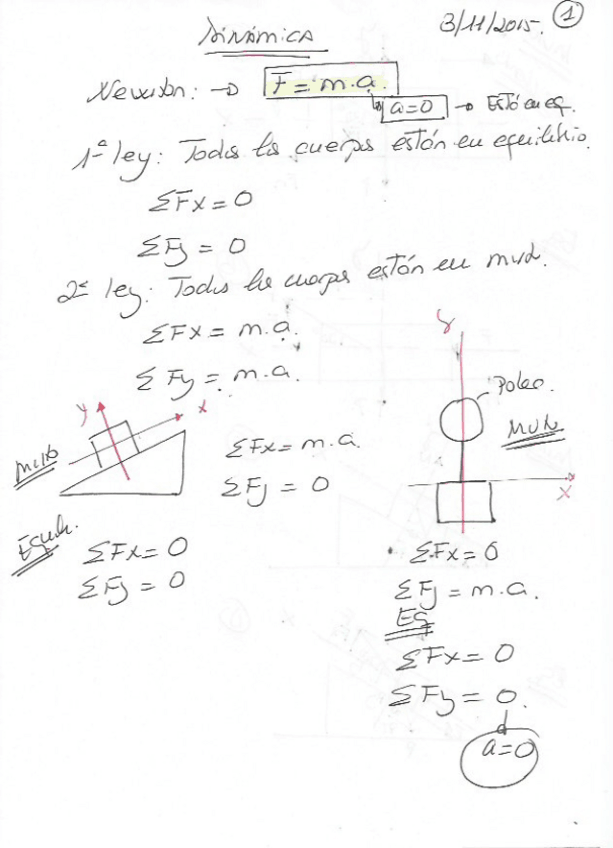 Dinámica
3/11/2015. 1
Newton: → F = m.a.
a=0 → Está en eq.
1ª ley: Todos los cuerpos están en equilibrio.
ΣFx = 0
ΣFy = 0
2ª ley: Todos los cuerpos están en mvto.
ΣFx = m.a.
ΣFy = m.a.
y
x
mvto
ΣFx = m.a.
ΣFy = 0
Equil.
ΣFx = 0
ΣFy = 0
y
Polea.
x
ΣFx = 0
ΣFy = m.a.
EQ
ΣFx = 0
ΣFy = 0.
a=0